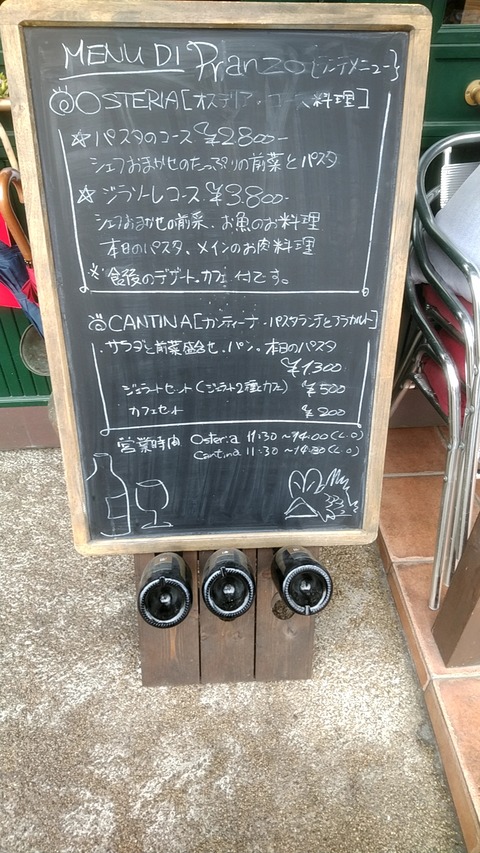 MENU DI Pranzo {ランチメニュー}
OSTERIA [オステリア・コース料理]
☆ パスタのコース ¥2800-
シェフおまかせのたっぷりの前菜とパスタ
☆ ジラソーレコース ¥3.800-
シェフおまかせの前菜、お魚のお料理
本日のパスタ、メインのお肉料理
※ 食後のデザート・カフェ 付です。
CANTINA [カンティーナ・パスタランチとアラカルト]
・サラダと前菜盛合せ・パン。本日のパスタ
¥1300
ジェラートセット(ジェラート2種とカフェ) ¥500
カフェセット ¥200
営業時間 Osteria 11:30〜14:00(L.O)
Cantina 11:30〜14:30(L.O)